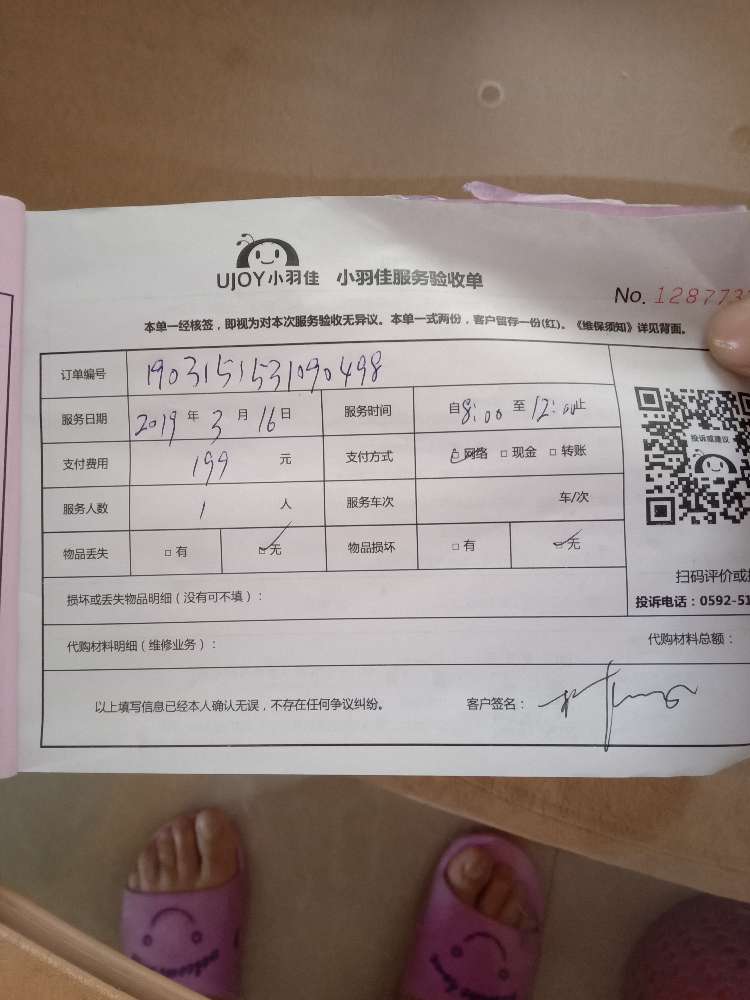 UJOY小羽佳 小羽佳服务验收单
No. 128773
本单一经核签，即视为对本次服务验收无异议。本单一式两份，客户留存一份(红)。《维保须知》详见背面。
订单编号 1903151531090498
服务日期 2019 年 3 月 16 日 服务时间 自 8:00 至 12:00 止
支付费用 199 元 支付方式 □ 网络 □ 现金 □ 转账
服务人数 1 人 服务车次 车/次
物品丢失 □ 有 □ 无 物品损坏 □ 有 □ 无
投诉或建议
扫码评价或
投诉电话：0592-51
损坏或丢失物品明细（没有可不填）：
代购材料明细（维修业务）： 代购材料总额：
以上填写信息已经本人确认无误，不存在任何争议纠纷。 客户签名：